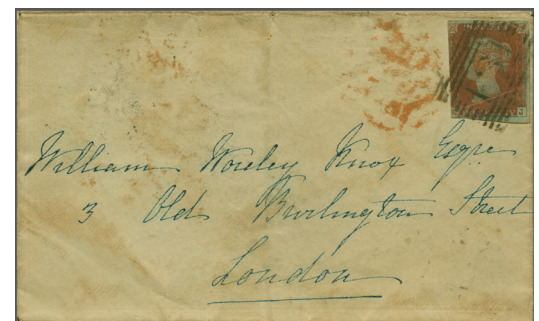 William Worsley Knox Esqre
3 Old Burlington Street
London